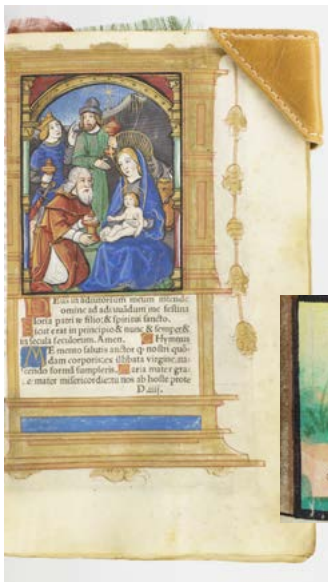 DEus in adiutorium meum intende
Domine ad adiuuādū me festina
Gloria patri & filio: & spiritui sancto.
Sicut erat in principio & nunc & semper &
in secula seculorum. Amen. Hymnus
MEmento salutis auctor q nostri quō-
dam corporis: ex illibata virgine: na-
scendo formā sumpseris. Maria mater gra-
tie mater misericordie: tu nos ab hoste prote
D.iiij.